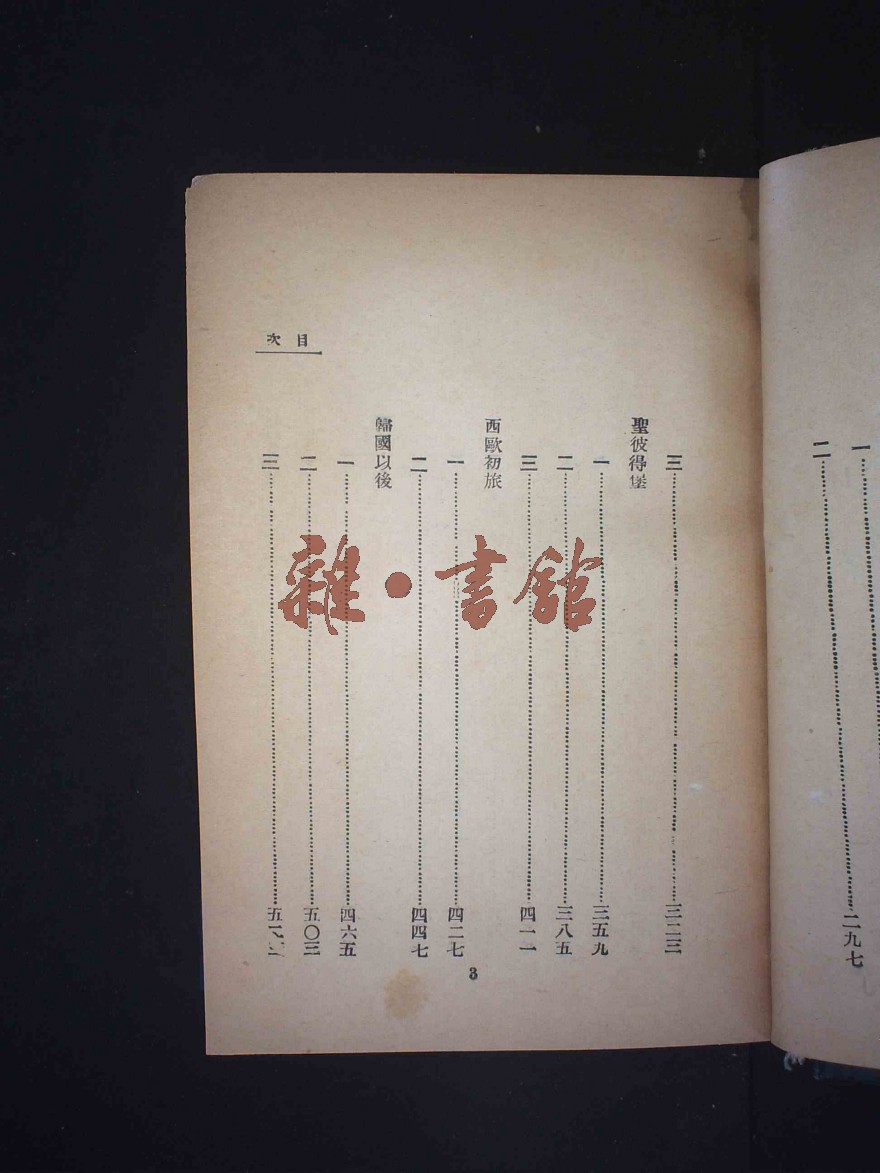 一
二……二九七
目次
三……三二三
聖彼得堡
一……三五九
二……三八五
三……四一一
西歐初旅
一……四二七
二……四四七
歸國以後
一……四六五
二……五〇三
三……
3
雜·書館